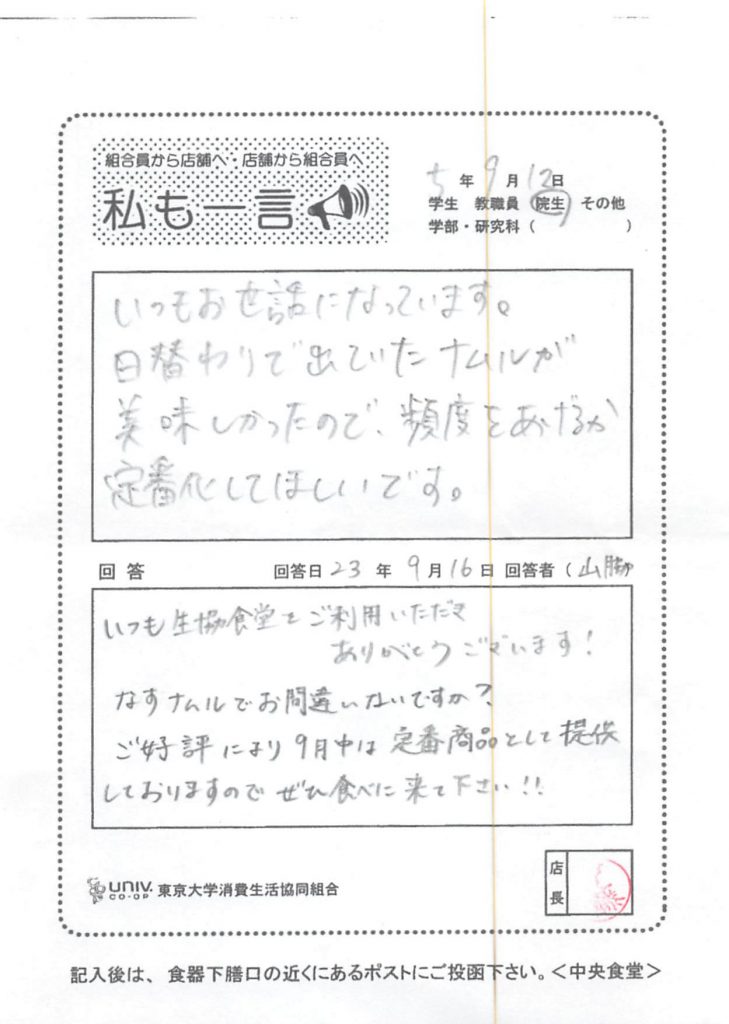 組合員から店舗へ・店舗から組合員へ
私も一言
5 年 9 月 12日
学生 教職員 院生 その他
学部・研究科（ ）
いつもお世話になっています。
日替わりで出ていたナムルが
美味しかったので、頻度をあげるか
定番化してほしいです。
回答 回答日 23 年 9 月 16 日 回答者（山脇
いつも生協食堂をご利用いただき
ありがとうございます！
なすナムルでお間違いないですか？
ご好評により9月中は定番商品として提供
しておりますのでぜひ食べに来て下さい!!
店長
UNIV. CO-OP 東京大学消費生活協同組合
記入後は、食器下膳口の近くにあるポストにご投函下さい。＜中央食堂＞